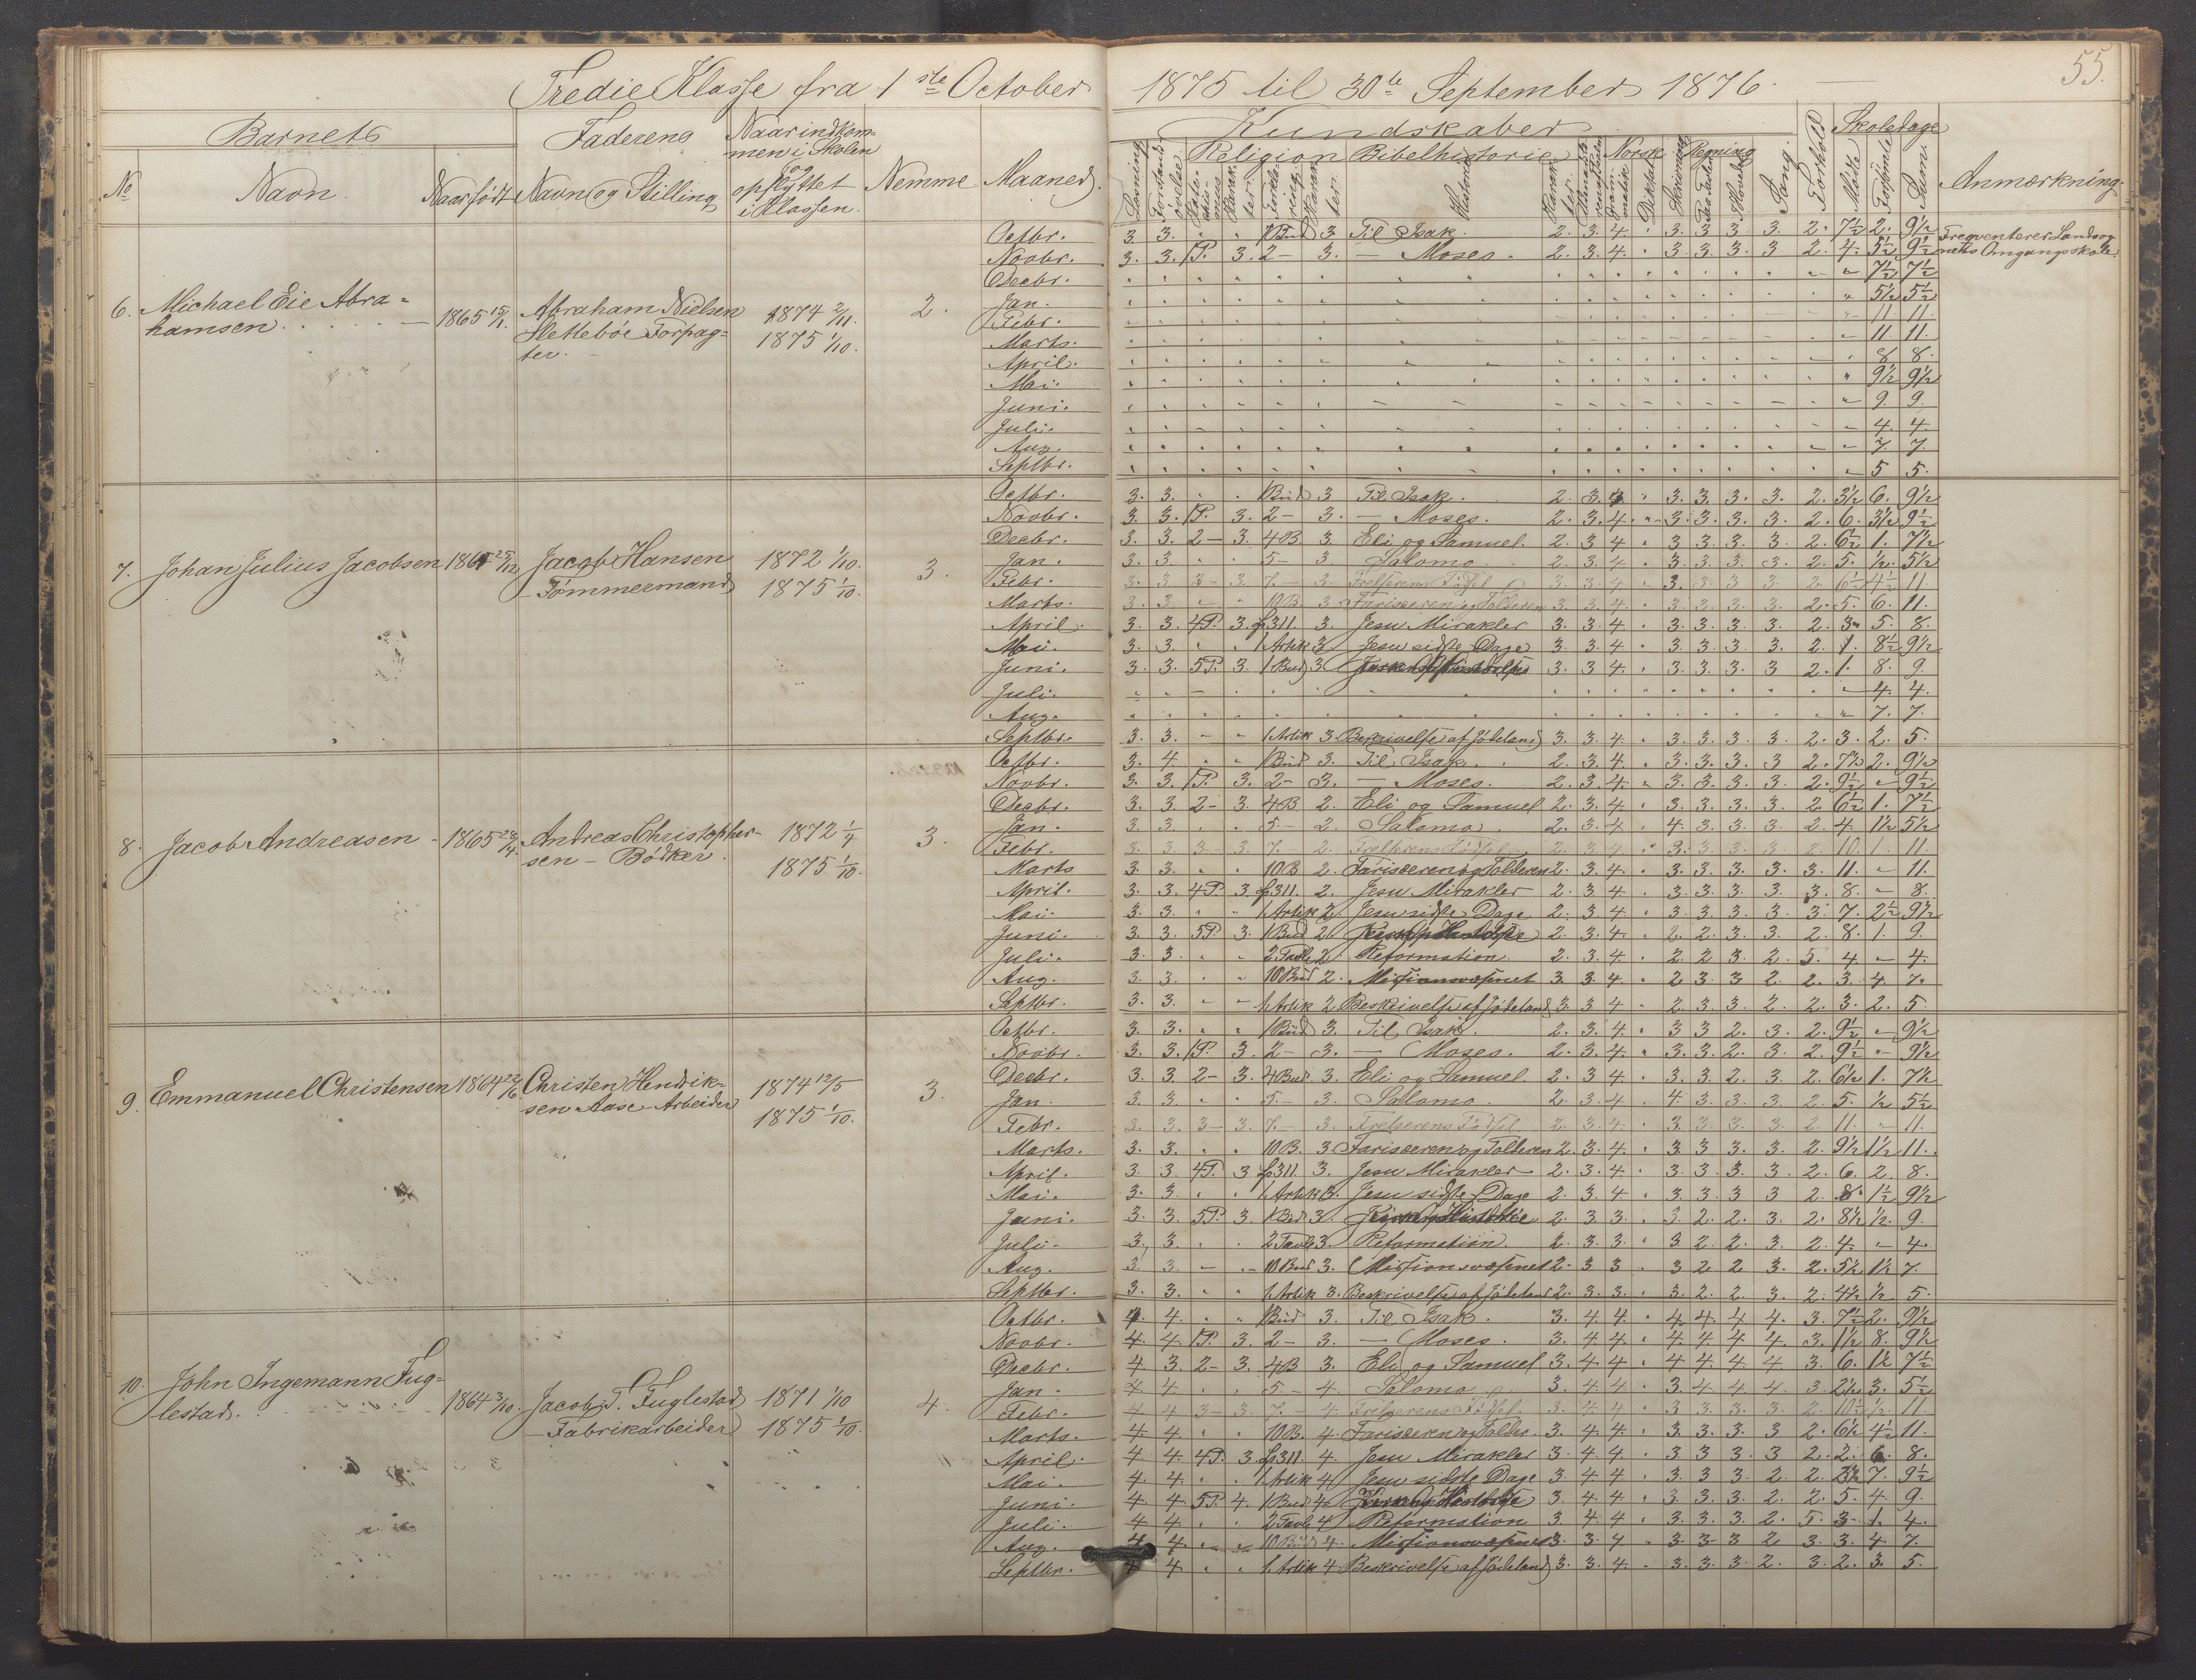 55.
Tredie Klasse fra 1ste October 1875 til 30te September 1876.
Barnets Faderens Naar indkommen i Skolen og opflyttet i Klassen. Nemme Maaned. Kundskaber Forhold Skoledage Anmærkning.
No Navn. Naar født Navn og Stilling
Læsning Forstandsøvelse Religion Bibelhistorie Norsk Regning Sang.
Historie Grammatik Diktat Skrivning Tavle Hoved Mødte Forsømte Sum.
Octbr. 3. 3. " " 1 Bud 3 Til Isak. 2. 3. 4. " 3. 3. 3. 3. 2. 7½ 2. 9½ Freqventerer Landsog
Novbr. 3. 3. 1P. 3. 2 – 3. — Moses. 2. 3. 4. " 3. 3. 3. 3 2. 4. 5½ 9½ nets Omgangsskole
Decbr. 7½ 7½
6. Michael Eie Abra= 1865 15/1. Abraham Nielsen 1874 2/11. 2. Jan. 5½ 5½
hamsen. Slettebøe Forpag= 1875 1/10. Febr. 11 11.
ter. Marts. 11 11.
April. 8 8.
Mai. 9½ 9½
Juni. 9. 9.
Juli. 4. 4.
Aug. 7. 7.
Septbr. 5 5.
Octbr. 3. 3. " " 1 Bud 3 Til Isak. 2. 3. 4. " 3. 3. 3. 3. 2. 3½ 6. 9½
Novbr. 3. 3. 1P. 3. 2 – 3. — Moses. 2. 3. 4. " 3. 3. 3. 3. 2. 6. 3½ 9½
Decbr. 3. 3. 2 – 3. 4 B 3. Eli og Samuel. 2. 3 4 " 3 3. 3. 3. 2. 6½ 1. 7½
7. Johan Julius Jacobsen 1865 25/12 Jacob Hansen 1872 1/10. 3. Jan. 3. 3 " " 5 – 3. Salomo. 2. 3. 4. " 3. 3. 3. 3. 2. 5. ½. 5½
– Tømmermand 1875 1/10. Febr. 3. 3. 3 – 3. 7. – 3. Frelserens Fødsel 3. 3. 4 " 3. 3. 3. 3. 2. 6½ 4½ 11.
Marts. 3. 3. " " 10 B. 3. Farisæeren og Tolderen 3. 3. 4. " 3. 3. 3. 3. 2. 5. 6. 11.
April. 3. 3. 4P. 3. p311. 3. Jesu Mirakler 3. 3. 4. " 3. 3. 3. 3. 2. 3. 5. 8.
Mai. 3. 3. " " 1 Artik 3 Jesu sidste Dage 3. 3. 4. " 3. 3. 3. 3. 2. 1. 8½ 9½
Juni. 3. 3. 5P. 3. 1 Bud 3 3. 3. 4. " 3. 3. 3. 3 2. 1. 8. 9.
Juli. 4. 4.
Aug. 7. 7.
Septbr. 3. 3. " " 1 Artik 3. Beskrivelse af Jødeland 3. 3. 4. " 3. 3. 3. 3. 2. 3. 2. 5.
Octbr. 3. 4. " " 1 Bud 3. Til Isak. 2. 3. 4. " 3. 3. 3. 3 2. 7½ 2. 9½
Novbr. 3. 3. 1P. 3. 2 – 3. — Moses. 2. 3. 4. " 3. 3. 3. 3. 2. 9½ " 9½
Decbr. 3. 3. 2 – 3. 4 B 2. Eli og Samuel 2. 3. 4. " 3. 3. 3. 3. 2 6½ 1. 7½
8. Jacob Andreasen 1865 28/4. Andreas Christopher– 1872 1/4 3. Jan. 3. 3. " " 5 – 2. Salomo. 2. 3. 4. " 4. 3. 3. 3. 2. 4. 1½ 5½
sen – Bødker. 1875 1/10. Febr. 3. 3. 3 – 3. 7. – 2. Frelserens Fødsel. 2. 3. 4. " 3. 3. 3. 3. 2. 10. 1. 11.
Marts 3. 3. " " 10 B 2. Farisæeren og Tolderen 2. 3. 4. " 3. 3. 3. 3. 3. 11. " 11.
April. 3. 3. 4P. 3. p311. 2. Jesu Mirakler 2. 3. 4. " 3. 3. 3. 3. 3. 8. " 8.
Mai. 3. 3. " " 1 Artik 2. Jesu sidste Dage 2. 3. 4. " 3. 3. 3. 3. 3. 7. 2½ 9½
Juni. 3. 3. 5P. 3. 1 Bud 2 2. 3. 4. " 2. 2. 3. 3. 2. 8. 1. 9.
Juli. 3. 3. " " 2 Tavle 2 Reformation. 2. 3. 4. " 2. 2 3. 2. 5. 4. " 4.
Aug. 3. 3. " " 10 Bud 2. Missionsvæsnet 3. 3. 4. " 2 3. 3 2. 2. 3. 4. 7.
Septbr. 3. 3. " " 1 Artik 2 Beskrivelse af Jødeland 3. 3. 4 " 2. 3. 3. 2. 2. 3. 2. 5
Octbr. 3. 3. " " 1 Bud 3. Til Isak. 2. 3. 4. " 3 3 2. 3. 2. 9½ " 9½
Novbr. 3. 3. 1P. 3. 2 – 3. — Moses. 2. 3. 4. " 3. 3. 2. 3. 2. 9½ " 9½
9. Emmanuel Christensen 1864 22/6 Christen Hendrik= 1874 12/5 3. Decbr. 3. 3. 2 – 3. 4 Bud 3. Eli og Samuel. 2. 3 4. " 3. 3. 2. 3. 2. 6½ 1. 7½
sen Aase – Arbeider 1875 1/10. Jan. 3. 3. " " 5. – 3. Salomo. 2. 3. 4. " 4 3. 3. 3. 2. 5. ½ 5½
Febr. 3. 3. 3 – 3. 7. – 3. Frelserens Fødsel. 2. 3. 4. " 3. 3. 3. 3. 2. 11. " 11.
Marts. 3. 3. " " 10 B. 3 Farisæeren og Tolderen 2. 3. 4. " 3. 3 3. 3. 2. 9½ 1½ 11.
April. 3. 3. 4P. 3 p311 3. Jesu Mirakler 2. 3. 4. " 3. 3. 3. 3. 2. 6. 2. 8.
Mai. 3. 3. " " 1 Artik 3. Jesu sidste Dage 2. 3. 4. " 3. 3. 3 3 2. 8. 1½ 9½
Juni. 3. 3. 5P. 3. 1 Bud 3. 2. 3. 3. " 3 2. 2. 3. 2. 8½ ½. 9.
Juli. 3. 3. " " 2 Tavle 3. Reformation. 2. 3. 3. " 3. 2. 2. 3. 2. 4. " 4.
Aug. 3. 3. " " 10 Bud 3. Missionsvæsnet 2. 3 3 " 3 2 2 3. 2. 5½ 1½ 7
Septbr. 3. 3. " " 1 Artik 3. Beskrivelse af Jødeland 2. 3. 3. " 3. 2. 2. 3 2. 4½ ½ 5.
Octbr. 4. 4. " " 1 Bud 3. Til Isak. 3. 4 4. " 4. 4. 4 4. 3. 7½ 2. 9½
Novbr. 4. 4. 1P. 3. 2 – 3. — Moses. 3. 4 4. " 4. 4. 4 4. 3. 1½ 8. 9½
Decbr. 4 3. 2 – 3. 4 B 3. Eli og Samuel 3. 4. 4. " 4 4. 4. 4 3. 6. 1½ 7½
10. John Ingemann Fug= 1864 3/10. Jacob T. Fuglestad 1871 1/10 4. Jan. 4 4. " " 5 – 4. Salomo 3. 4. 4. " 3. 4. 4 4. 3. 2½ 3. 5½
lestad. – Fabrikarbeider 1875 1/10. Febr. 4 4 3 – 3. 7. – 4 Frelserens Fødsel. 3. 4 4. " 3. 3. 3. 3. 2. 10½ ½. 11.
Marts. 4 4. " " 10 B. 4. Farisæeren og Tolder. 3. 4. 4. " 3. 3. 3. 3 2. 6½ 4½ 11.
April. 4 4. 4P. 3. p311. 4. Jesu Mirakler 3. 4. 4. " 3 3 3. 3 2. 2. 6. 8.
Mai. 4 4. " " 1 Artik 4 Jesu sidste Dage 3. 4 4. " 3. 3. 3 2. 2. 2½ 7. 9½
Juni. 4. 4 5P. 4. 1 Bud 4. 3. 4. 4. " 3. 3. 3. 2. 2. 5. 4. 9.
Juli. 4. 4. " " 2 Tavle 4 Reformation 3. 4 4. " 3. 3. 3 2. 5. 3. 1. 4.
Aug. 4 4. " " 10 Bud 4. Missionsvæsnet 3. 3. 4 " 3. 3 3 2 3. 3. 4. 7.
Septbr. 4 4 " " 1 Artik 4 Beskrivelse af Jødeland 3. 3. 4. " 3. 3. 3. 2. 3. 2. 3. 5.